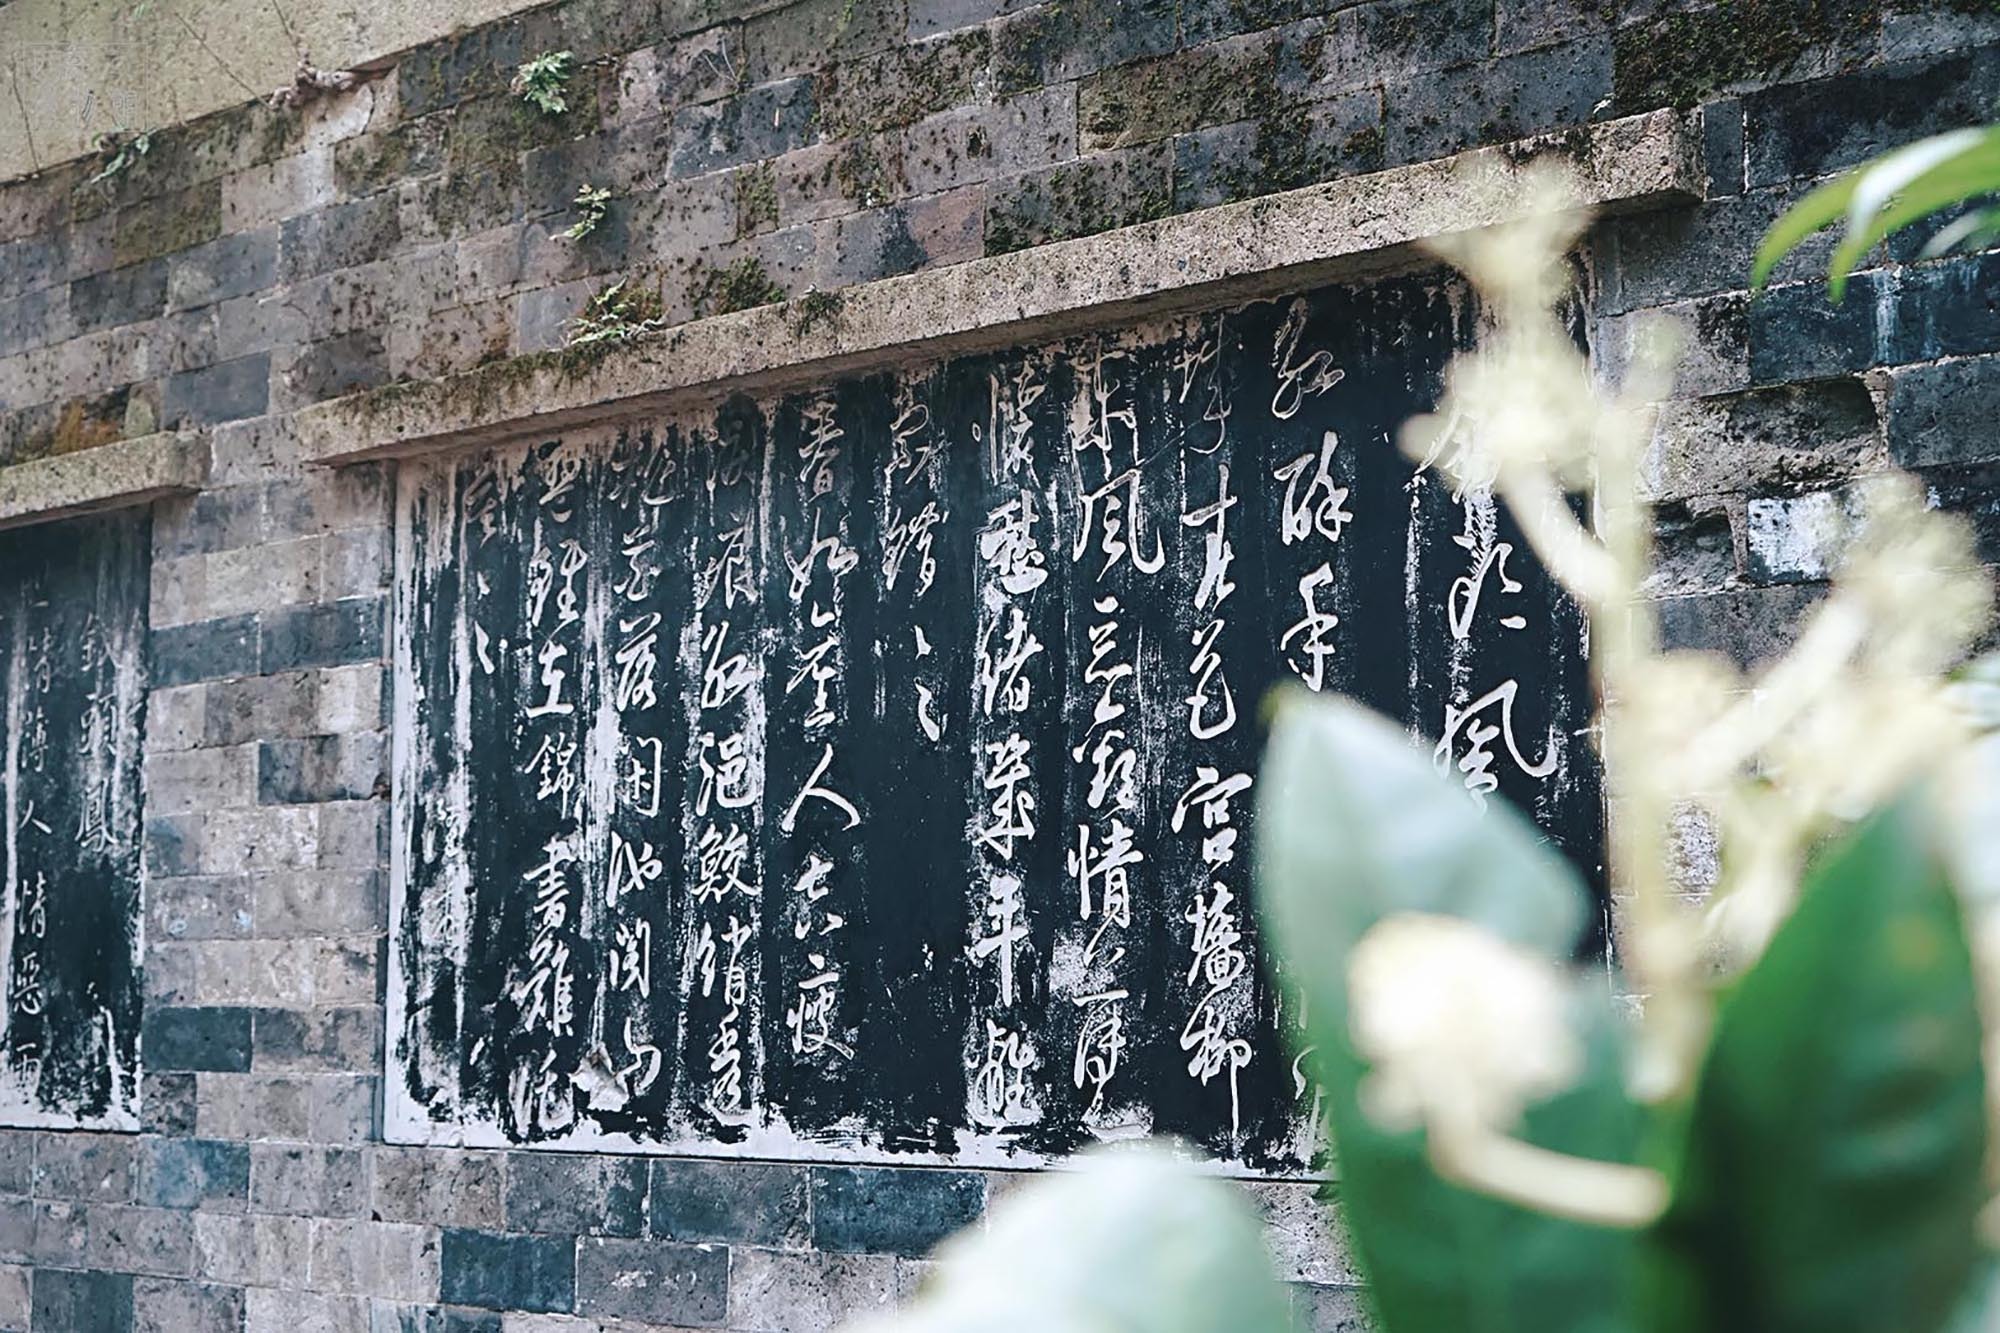 釵頭鳳
紅酥手
城春色宮墻柳
東風惡歡情薄
懷愁緒幾年離
索錯、、
春如舊人空瘦
淚痕紅浥鮫綃透
桃花落閑池閣山
盟雖在錦書難託
莫、、
陸游
釵頭鳳
世情薄人情惡雨